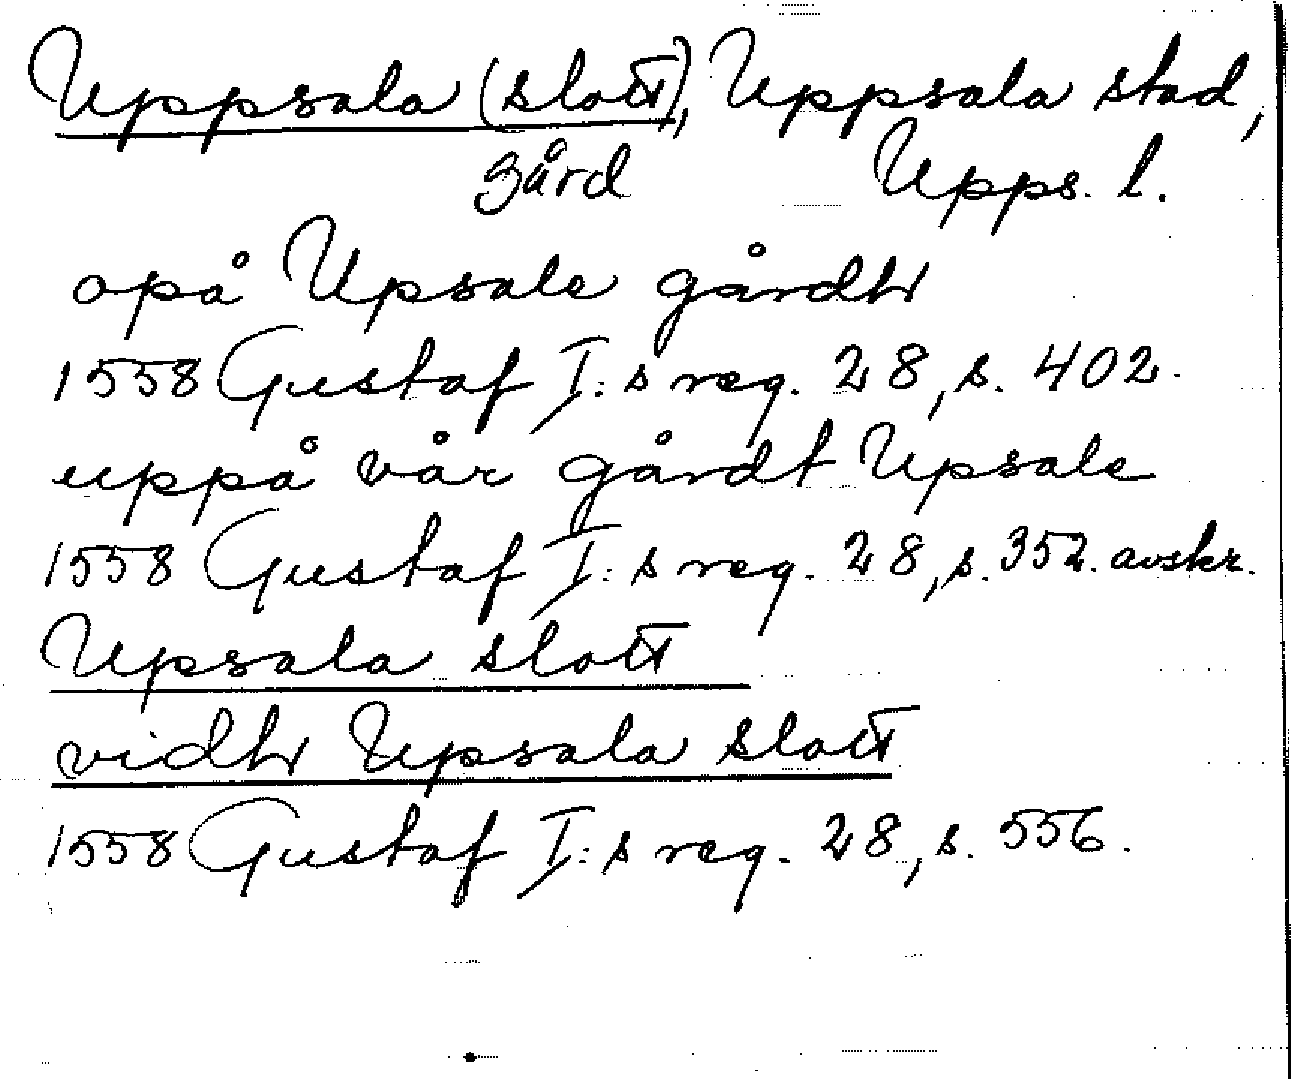 Uppsala (slott), Uppsala stad,
gård Upps. l.
opå Upsale gårdh
1558 Gustaf I:s reg. 28, s. 402.
uppå vår gårdt Upsale
1558 Gustaf I:s reg. 28, s. 352. avskr.
Upsala slott
vidh Upsala slott
1558 Gustaf I:s reg. 28, s. 556.